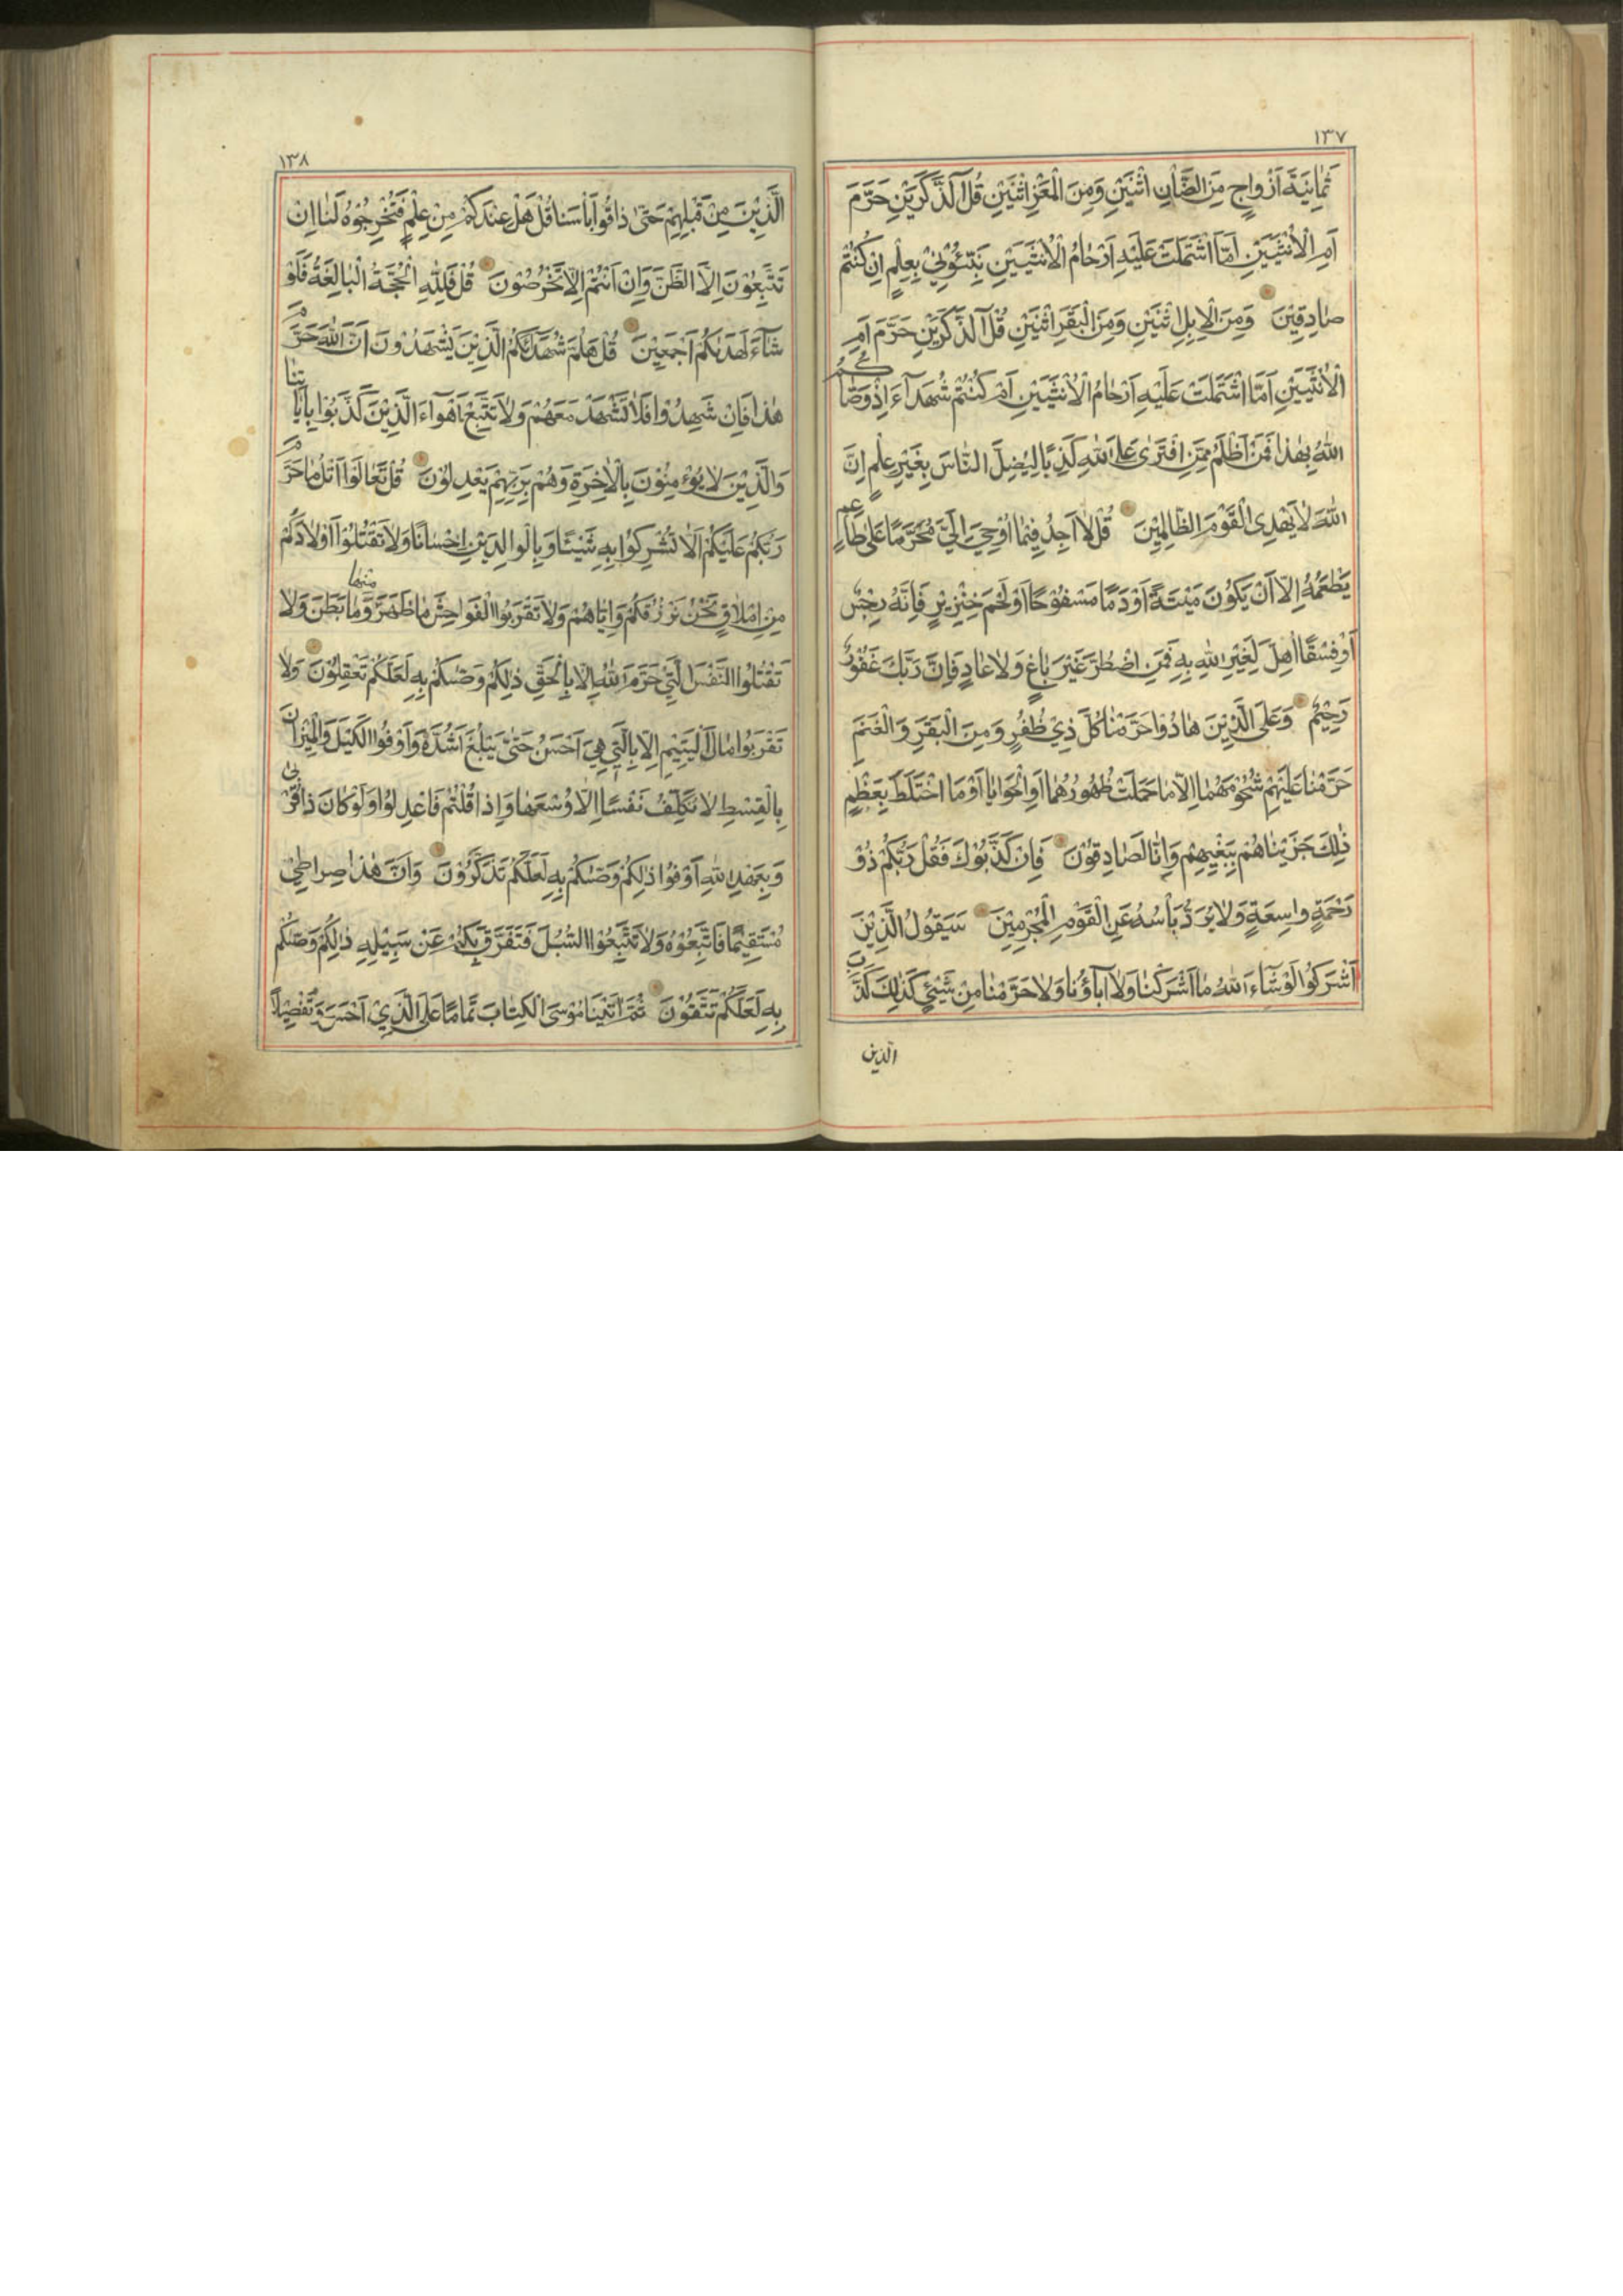 ١٣٧
ثَمَانِيَةَ اَزْوَاجٍ مِنَ الضَّاْنِ اثْنَيْنِ وَمِنَ الْمَعْزِ اثْنَيْنِ قُلْ آلذَّكَرَيْنِ حَرَّمَ
اَمِ الْاُنْثَيَيْنِ اَمَّا اشْتَمَلَتْ عَلَيْهِ اَرْحَامُ الْاُنْثَيَيْنِ نَبِّئُونِيْ بِعِلْمٍ اِنْ كُنْتُمْ
صَادِقِيْنَ وَمِنَ الْاِبِلِ اثْنَيْنِ وَمِنَ الْبَقَرِ اثْنَيْنِ قُلْ آلذَّكَرَيْنِ حَرَّمَ اَمِ
الْاُنْثَيَيْنِ اَمَّا اشْتَمَلَتْ عَلَيْهِ اَرْحَامُ الْاُنْثَيَيْنِ اَمْ كُنْتُمْ شُهَدَآءَ اِذْ وَصّٰاكُمُ
اللّٰهُ بِهٰذَا فَمَنْ اَظْلَمُ مِمَّنِ افْتَرٰى عَلَى اللّٰهِ كَذِبًا لِيُضِلَّ النَّاسَ بِغَيْرِ عِلْمٍ اِنَّ
اللّٰهَ لَا يَهْدِى الْقَوْمَ الظَّالِمِيْنَ قُلْ لَا اَجِدُ فِيْمَا اُوْحِيَ اِلَيَّ مُحَرَّمًا عَلٰى طَاعِمٍ
يَطْعَمُهُ اِلَّا اَنْ يَكُوْنَ مَيْتَةً اَوْ دَمًا مَسْفُوْحًا اَوْ لَحْمَ خِنْزِيْرٍ فَاِنَّهُ رِجْسٌ
اَوْ فِسْقًا اُهِلَّ لِغَيْرِ اللّٰهِ بِهِ فَمَنِ اضْطُرَّ غَيْرَ بَاغٍ وَلَا عَادٍ فَاِنَّ رَبَّكَ غَفُوْرٌ
رَحِيْمٌ وَعَلَى الَّذِيْنَ هَادُوا حَرَّمْنَا كُلَّ ذِيْ ظُفُرٍ وَمِنَ الْبَقَرِ وَالْغَنَمِ
حَرَّمْنَا عَلَيْهِمْ شُحُوْمَهُمَا اِلَّا مَا حَمَلَتْ ظُهُوْرُهُمَا اَوِ الْحَوَايَا اَوْ مَا اخْتَلَطَ بِعَظْمٍ
ذٰلِكَ جَزَيْنَاهُمْ بِبَغْيِهِمْ وَاِنَّا لَصَادِقُوْنَ فَاِنْ كَذَّبُوْكَ فَقُلْ رَبُّكُمْ ذُوْ
رَحْمَةٍ وَاسِعَةٍ وَلَا يُرَدُّ بَأْسُهُ عَنِ الْقَوْمِ الْمُجْرِمِيْنَ سَيَقُوْلُ الَّذِيْنَ
اَشْرَكُوا لَوْ شَآءَ اللّٰهُ مَا اَشْرَكْنَا وَلَا آبَاؤُنَا وَلَا حَرَّمْنَا مِنْ شَيْئٍ كَذٰلِكَ كَذَّبَ
الذين
١٣٨
الَّذِيْنَ مِنْ قَبْلِهِمْ حَتّٰى ذَاقُوْا بَأْسَنَا قُلْ هَلْ عِنْدَكُمْ مِنْ عِلْمٍ فَتُخْرِجُوْهُ لَنَا اِنْ
تَتَّبِعُوْنَ اِلَّا الظَّنَّ وَاِنْ اَنْتُمْ اِلَّا تَخْرُصُوْنَ قُلْ فَلِلّٰهِ الْحُجَّةُ الْبَالِغَةُ فَلَوْ
شَآءَ لَهَدٰيكُمْ اَجْمَعِيْنَ قُلْ هَلُمَّ شُهَدَآءَكُمُ الَّذِيْنَ يَشْهَدُوْنَ اَنَّ اللّٰهَ حَرَّمَ
هٰذَا فَاِنْ شَهِدُوْا فَلَا تَشْهَدْ مَعَهُمْ وَلَا تَتَّبِعْ اَهْوَآءَ الَّذِيْنَ كَذَّبُوْا بِاٰيَاتِنَا
وَالَّذِيْنَ لَا يُؤْمِنُوْنَ بِالْاٰخِرَةِ وَهُمْ بِرَبِّهِمْ يَعْدِلُوْنَ قُلْ تَعَالَوْا اَتْلُ مَا حَرَّمَ
رَبُّكُمْ عَلَيْكُمْ اَلَّا تُشْرِكُوْا بِهِ شَيْئًا وَبِالْوَالِدَيْنِ اِحْسَانًا وَلَا تَقْتُلُوْا اَوْلَادَكُمْ
مِنْ اِمْلَاقٍ نَحْنُ نَرْزُقُكُمْ وَاِيَّاهُمْ وَلَا تَقْرَبُوا الْفَوَاحِشَ مَا ظَهَرَ مِنْهَا وَمَا بَطَنَ وَلَا
تَقْتُلُوا النَّفْسَ الَّتِيْ حَرَّمَ اللّٰهُ اِلَّا بِالْحَقِّ ذٰلِكُمْ وَصّٰىكُمْ بِهِ لَعَلَّكُمْ تَعْقِلُوْنَ وَلَا
تَقْرَبُوْا مَالَ الْيَتِيْمِ اِلَّا بِالَّتِيْ هِيَ اَحْسَنُ حَتّٰى يَبْلُغَ اَشُدَّهُ وَاَوْفُوا الْكَيْلَ وَالْمِيْزَانَ
بِالْقِسْطِ لَا نُكَلِّفُ نَفْسًا اِلَّا وُسْعَهَا وَاِذَا قُلْتُمْ فَاعْدِلُوْا وَلَوْ كَانَ ذَا قُرْبٰى
وَبِعَهْدِ اللّٰهِ اَوْفُوْا ذٰلِكُمْ وَصّٰىكُمْ بِهِ لَعَلَّكُمْ تَذَكَّرُوْنَ وَاَنَّ هٰذَا صِرَاطِيْ
مُسْتَقِيْمًا فَاتَّبِعُوْهُ وَلَا تَتَّبِعُوْا السُّبُلَ فَتَفَرَّقَ بِكُمْ عَنْ سَبِيْلِهِ ذٰلِكُمْ وَصّٰىكُمْ
بِهِ لَعَلَّكُمْ تَتَّقُوْنَ ثُمَّ اٰتَيْنَا مُوْسَى الْكِتَابَ تَمَامًا عَلَى الَّذِيْ اَحْسَنَ وَتَفْصِيْلًا